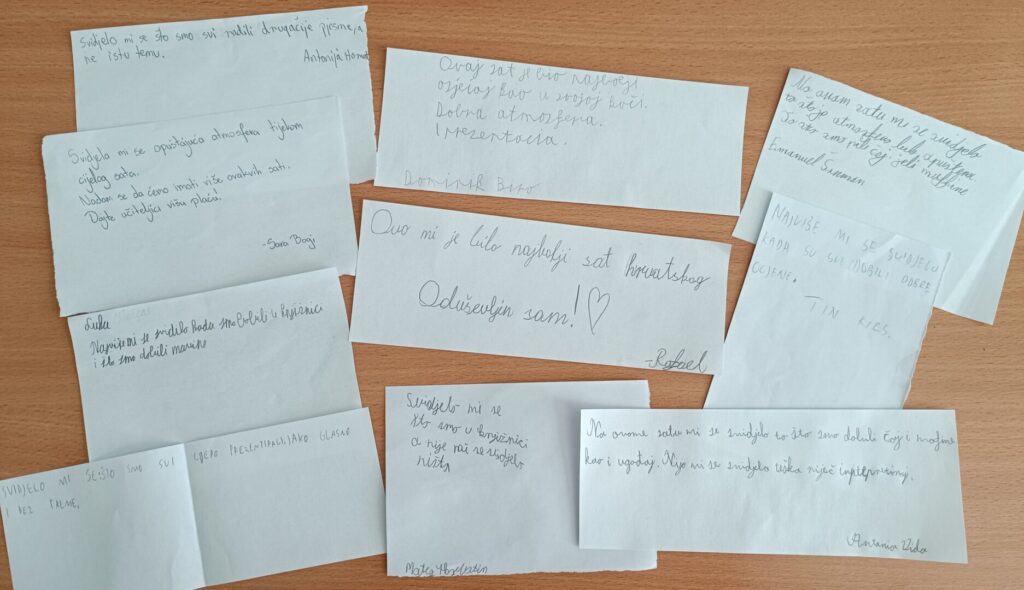 Svidjelo mi se što smo svi radili drugačije pjesme, a
ne istu temu.
Antonija
Svidjela mi se opuštajuća atmosfera tijekom
cijelog sata.
Nadam se da ćemo imati više ovakvih sati.
Dajte učiteljici višu plaću!
-Sara Bogj
Luka
Najviše mi se svidelo kada smo bili u knjižnici
i što smo dobili
SVIDJELO MI SE ŠTO SMO SVI LIJEPO PREZENTIRALI, JAKO GLASNO
I BEZ TREME.
Ovaj sat je bio najbolji
osjećaj kao u svojoj kući.
Dobra atmosfera.
Prezentacia.
Dominik Biro
Ovo mi je bilo najbolji sat hrvatskog
Oduševljen sam!♡
-Rafael
Svidjelo mi se
što smo u knjižnici
a nije mi se svidjelo
ništa
Mateo
Na ovom satu mi se svidjelo
to što je atmosfera bila opuštena.
To što smo pili čaj i jeli muffine
Emanuel
NAJVIŠE MI SE SVIDJELO
KADA SU SVI DOBILI DOBRE
OCJENE.
TIN KIES.
Na ovome satu mi se svidjelo to što smo dobili čaj i mafine
kao i ugođaj. Nije mi se svidjela teška riječ
Antonia Vida